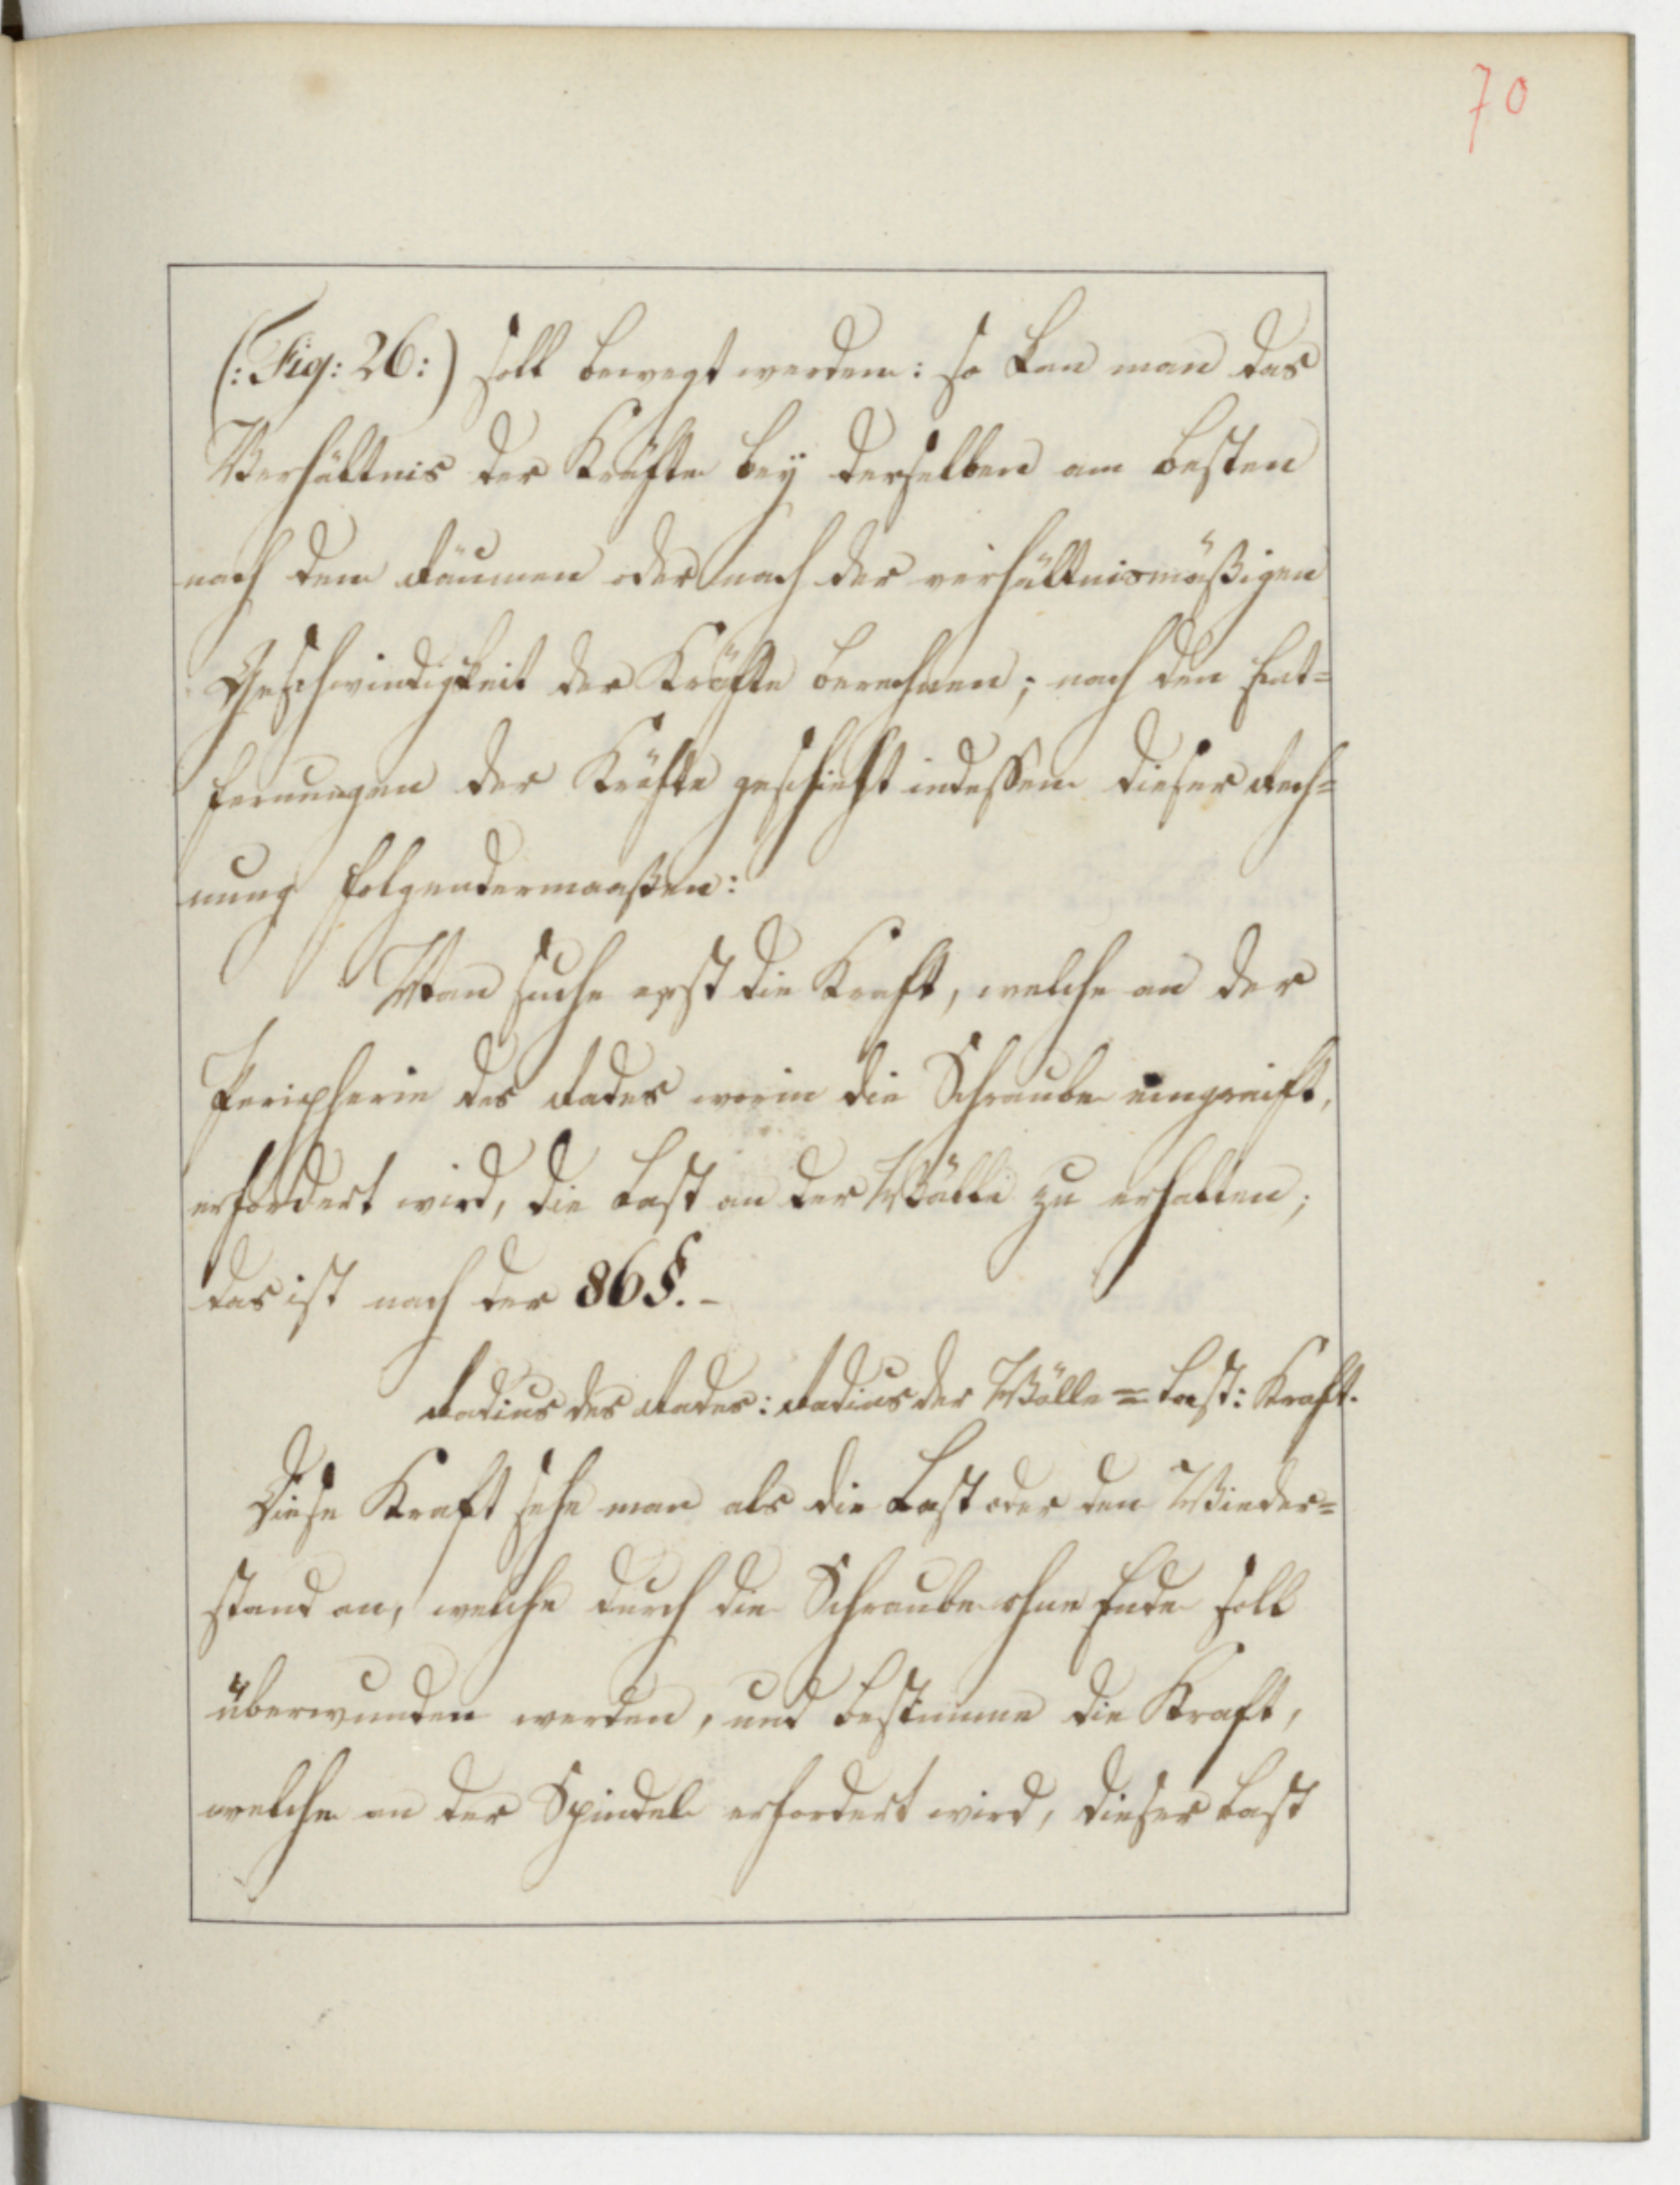 70
(: Fig: 26 :) soll bewegt werden: so kan man das
Verhältnis der Kräfte beÿ derselben am besten
nach dem Räumen oder nach der verhältnismäßigen
Geschwindigkeit der Kräfte berechnen; nach den Ent=
fernungen der Kräfte geschieht indessen dieser Rech=
nung folgendermaaßen:
Man suche erst die Kraft, welche an der
Peripherie des Rades worin die Schraube eingreift,
erfordert wird, die Last an der Wälle zu erhalten;
das ist nach der 86 §. –
Radius des Rades: Radius der Wälle = Last: Kraft.
Diese Kraft sehe man als die Last oder den Wieder=
stand an, welche durch die Schraube ohne Ende soll
überwunden werden, und bestimme die Kraft,
welche an der Spindel erfordert wird, dieser Last